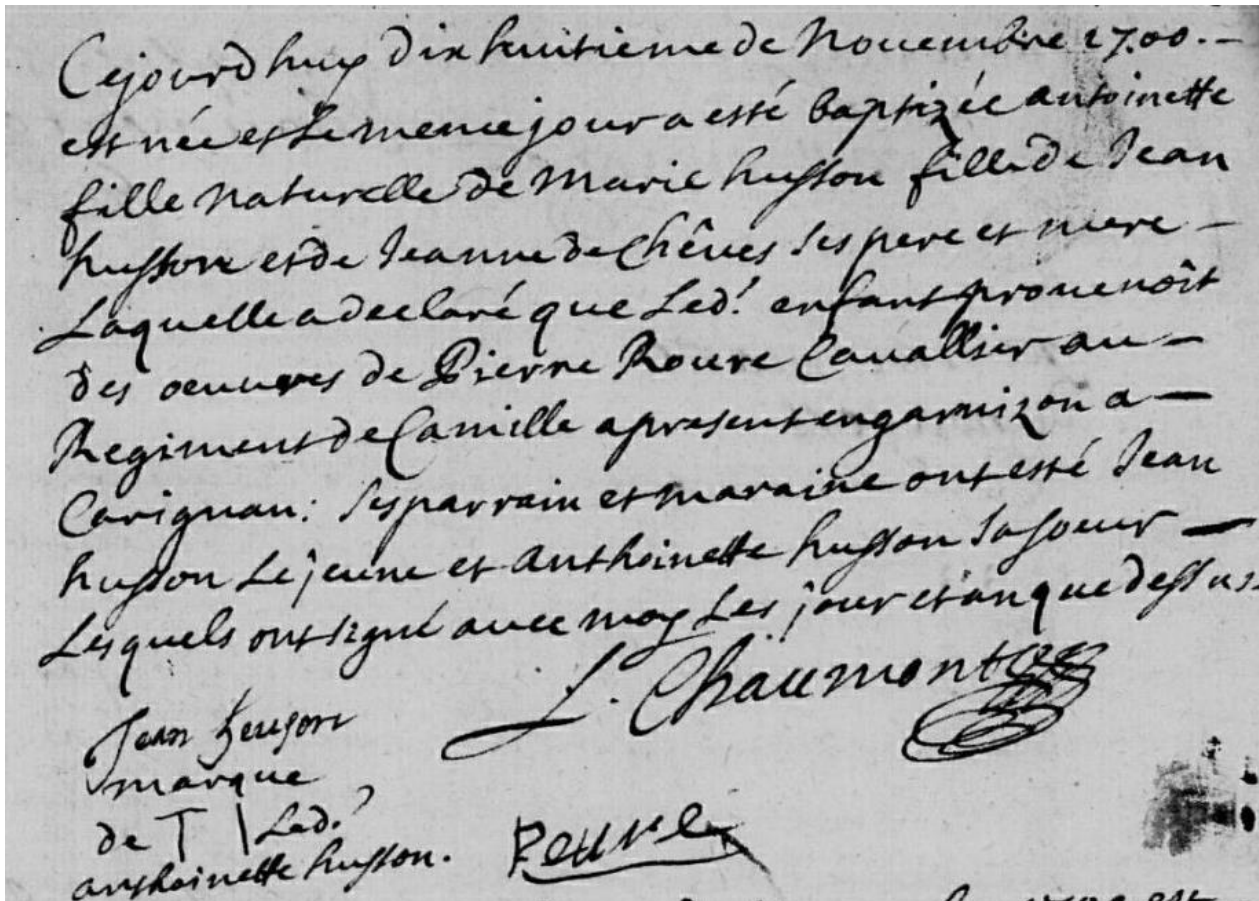 Cejourdhuy dix huitieme de Nouembre 1700. -
est née et Le meme jour a esté baptizée antoinette
fille naturelle de Marie husson fille de Jean
husson et de Jeanne de Chêves ses pere et mere -
Laquelle a declaré que Led.t enfant prouenoît
des oeuures de Pierre Roure Cauallier au -
Regiment de Camille apresent en garnizon a -
Carignan: ses parrain et maraine ont esté Jean
husson Le jeune et Anthoinette husson sa soeur -
Lesquels ont signé auec moy Les jour et an que dessus
L. Chaumont
Jean heuson
marque
de T | Lad.e
anthoinette husson.